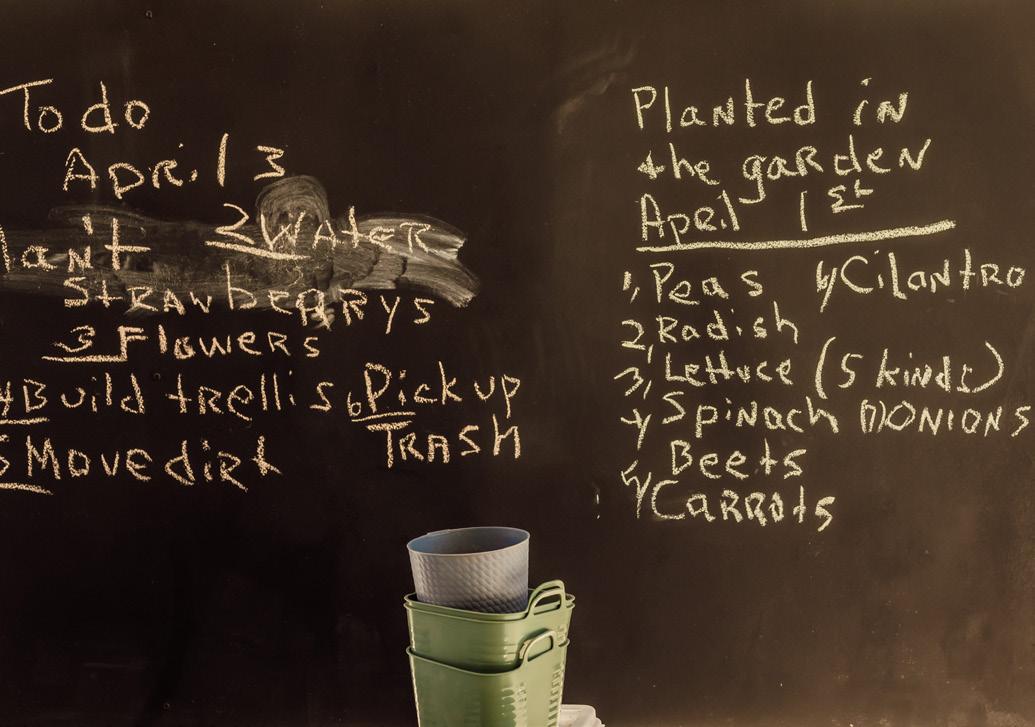 To do
April 3
lan't 2 Water
Strawbearrys
3 Flowers
4 Build trellis 6 Pick up
Trash
5 Move dirt
Planted in
the garden
April 1st
1, Peas Cilantro
2, Radish
3, Lettuce (5 kinds)
4, Spinach Onions
Beets
5, Carrots